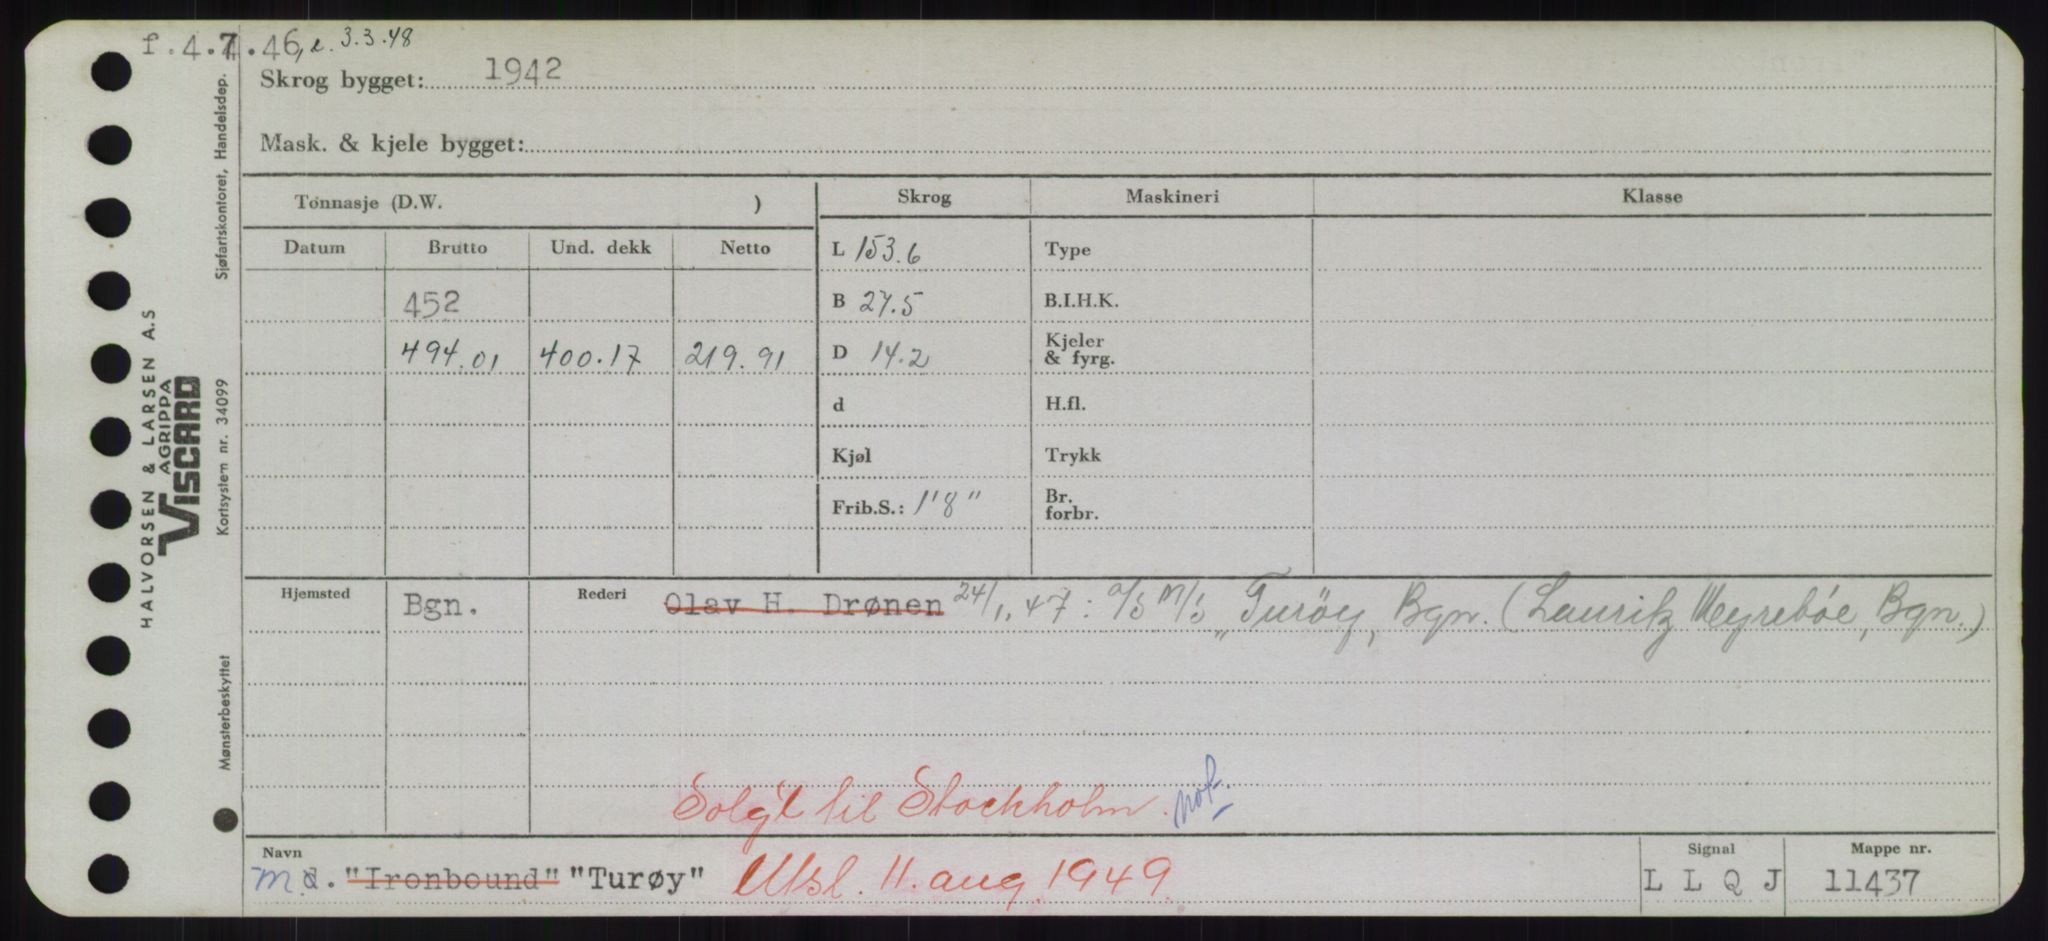 f.4.7.46, e. 3.3.48
Skrog bygget: 1942
Mask. & kjele bygget:
Tonnasje (D.W. )
Skrog Maskineri Klasse
Datum Brutto Und. dekk Netto
L 153.6 Type
452 B 27.5 B.I.H.K.
494.01 400.17 219.91 D 14.2 Kjeler & fyrg.
d H.fl.
Kjøl Trykk
Frib.S.: 1'8" Br. forbr.
Hjemsted Bgn. Rederi Olav H. Drønen 24/1.47: A/S M/S "Turøy, Bgn. (Lauritz Meyrebøe, Bgn.)
Solgt til Stockholm. not.
Navn
m "Ironbound" "Turøy" Utsl. 11. aug. 1949.
Signal
L L Q J
Mappe nr.
11437
HALVORSEN & LARSEN A.S
AGRIPPA
VISCARD
Mønsterbeskyttet Kortsystem nr. 34099 Sjøfartskontoret, Handelsdep.